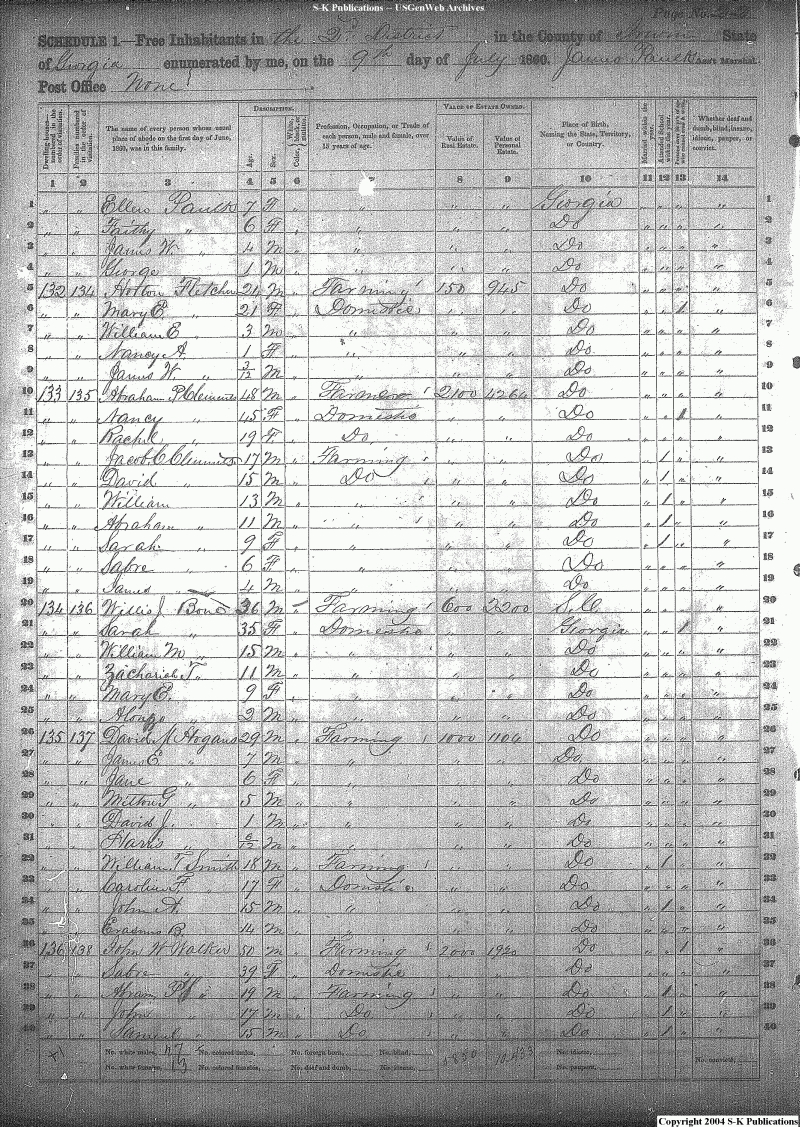 S-K Publications -- USGenWeb Archives
Page No.
SCHEDULE 1.—Free Inhabitants in the 2nd District in the County of Irwin State
of Georgia enumerated by me, on the 9th day of July 1860. James Paulk Ass't Marshal.
Post Office None
DESCRIPTION. VALUE OF ESTATE OWNED.
Dwelling-houses— numbered in the order of visitation. Families numbered in the order of visitation. The name of every person whose usual place of abode on the first day of June, 1860, was in this family. Age. Sex. Color, White, black, or mulatto. Profession, Occupation, or Trade of each person, male and female, over 15 years of age. Value of Real Estate. Value of Personal Estate. Place of Birth, Naming the State, Territory, or Country. Married within the year. Attended School within the year. Whether deaf and dumb, blind, insane, idiotic, pauper, or convict.
1 2 3 4 5 6 7 8 9 10 11 12 13 14
1 " " Ellen Paulk 7 F " " " " Georgia " " " " 1
2 " " Faithy " 6 F " " " " Do " " " " 2
3 " " James W. " 4 M " " " " Do " " " " 3
4 " " George " 1 M " " " " Do " " " " 4
5 132 134 Hotton Fletcher 24 M " Farming 150 945 Do " " " " 5
6 " " Mary E. " 21 F " Domestic " " Do " " 1 " 6
7 " " William E " 3 M " " " " Do " " " " 7
8 " " Nancy A. " 1 F " " " " Do " " " " 8
9 " " James W. " 3/12 M " " " " Do " " " " 9
10 133 135 Abraham P. Clements 48 M " Farmer 2100 4264 Do " " " " 10
11 " " Nancy " 45 F " Domestic " " Do " " 1 " 11
12 " " Rachel " 19 F " Do " " Do " " " " 12
13 " " Jacob C Clements 17 M " Farming " " Do " 1 " " 13
14 " " David " 15 M " Do " " Do " 1 " " 14
15 " " William " 13 M " " " " Do " 1 " " 15
16 " " Abraham " 11 M " " " " Do " 1 " " 16
17 " " Sarah " 9 F " " " " Do " 1 " " 17
18 " " Sabre " 6 F " " " " Do " " " " 18
19 " " James " 4 M " " " " Do " " " " 19
20 134 136 Willis J Bone 36 M " Farming 600 2200 S.C. " " " " 20
21 " " Sarah " 35 F " Domestic " " Georgia " " 1 " 21
22 " " William M " 15 M " " " " Do " " " " 22
23 " " Zachariah T. " 11 M " " " " Do " " " " 23
24 " " Mary E. " 9 F " " " " Do " " " " 24
25 " " Alonzo " 2 M " " " " Do " " " " 25
26 135 137 David M Hogans 29 M " Farming 1000 1104 Do " " " " 26
27 " " James E. " 7 M " " " " Do " " " " 27
28 " " Jane " 6 F " " " " Do " " " " 28
29 " " Milton G. " 5 M " " " " Do " " " " 29
30 " " David J. " 1 M " " " " Do " " " " 30
31 " " Harris " 6/12 M " " " " Do " " " " 31
32 " " William T Smith 18 M " Farming " " Do " 1 " " 32
33 " " Carolien F. " 17 F " Domestic " " Do " " " " 33
34 " " John A. " 15 M " " " " Do " 1 " " 34
35 " " Erasmus B. " 14 M " " " " Do " " " " 35
36 136 138 John W Walker 50 M " Farming 2000 1920 Do " " 1 " 36
37 " " Sabre " 39 F " Domestic " " Do " " " " 37
38 " " Abram " 19 M " Farming " " Do " 1 " " 38
39 " " John " 17 M " Do " " Do " 1 " " 39
40 " " Samuel " 15 M " Do " " Do " 1 " " 40
No. white males, No. colored males, No. foreign born, No. blind, 10,433 No. idiotic, No. convicts,
No. white females, 13 No. colored females, No. deaf and dumb, No. insane, No. paupers,
Copyright 2004 S-K Publications